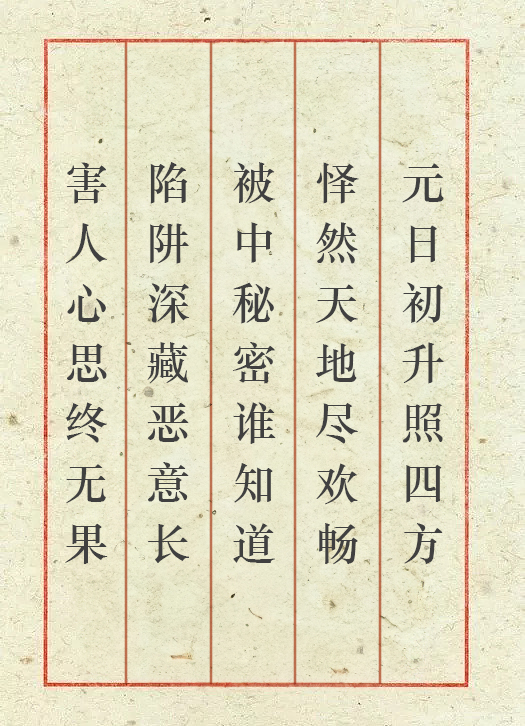 元日初升照四方
怿然天地尽欢畅
被中秘密谁知道
陷阱深藏恶意长
害人心思终无果